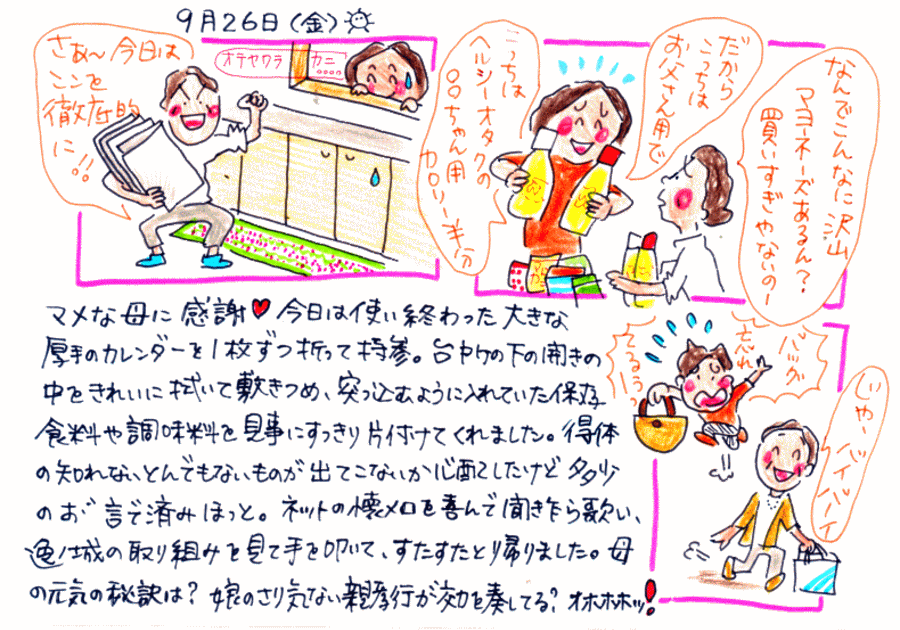 9月26日(金)
さあ〜今日は
ここを
徹底的
に!!
オテヤワラ
カニ
なんでこんなに沢山
マヨネーズあるん?
買いすぎやないのー
だから
こっちは
お父さん用で
こっちは
ヘルシーオタクの
○○ちゃん用
カロリー半分
マメな母に感謝♥今日は使い終わった大きな
厚手のカレンダーを1枚ずつ折って持参。台所の下の開きの
中をきれいに拭いて敷きつめ、突っ込むように入れていた保存
食料や調味料を見事にすっきり片付けてくれました。得体
の知れないとんでもないものが出てこないか心配したけど多少
のお言で済みほっと。ネットの懐メロを喜んで聞き乍ら歌い、
逸ノ城の取り組みを見て手を叩いて、すたすたとり帰りました。母
の元気の秘訣は?娘のさり気ない親孝行が効を奏してる?オホホホッ!
バッグ
忘れ
てるぅっ
じゃ、バイ
バイバイ